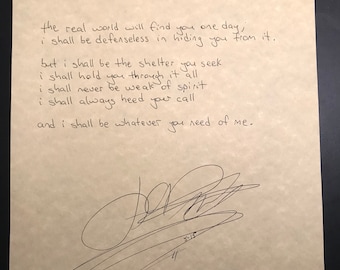 the real world will find you one day,
i shall be defenseless in hiding you from it.
but i shall be the shelter you seek
i shall hold you through it all
i shall never be weak of spirit
i shall always heed your call
and i shall be whatever you need of me.